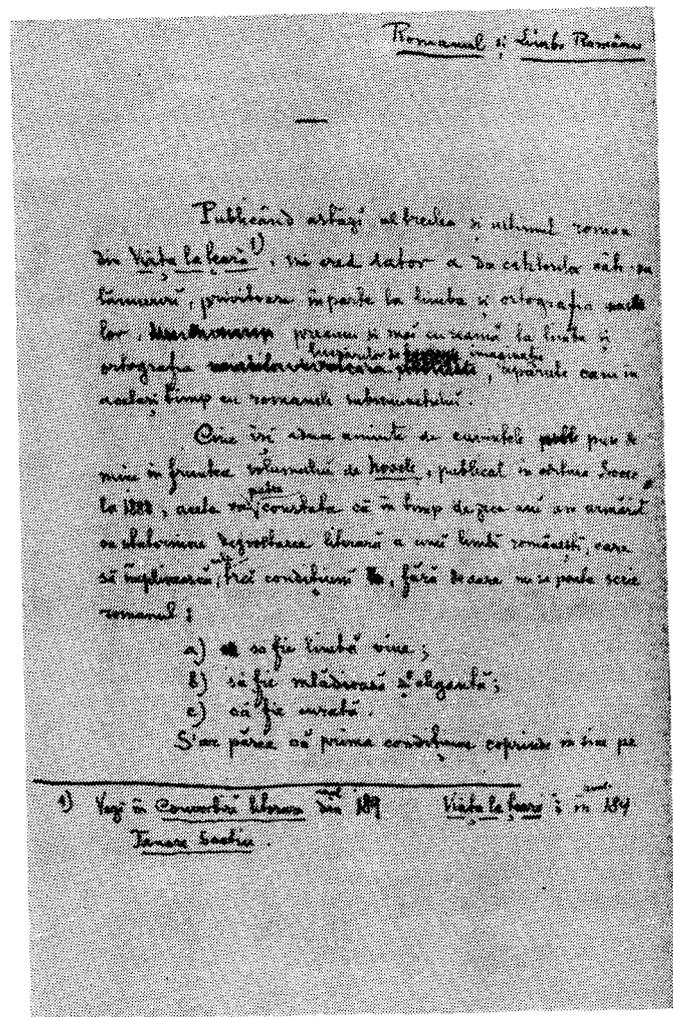 Romanul și Limba Română
Publicând astăzi al treilea și ultimul roman
din Viața la țeară 1), mi cred dator a da cititorilor
lămuriri, privitoare în parte la limba și ortografia
lor, precum și mai cu seamă la limba și
lucrărilor de imaginație
ortografia, apărute cam în
același timp cu romanele subsemnatului.
Cine își aduce aminte de cuvintele puse de
mine în fruntea volumului de Novele, publicat în editura Socec
putea
la 1888, acela va constata că în timp de zece ani am urmărit
cu stăruință desvoltarea literară a unei limbi românești, care
să împlinească trei condițiuni, fără de care nu se poate scrie
romanul:
a) să fie limbă vine;
b) să fie mlădioasă și elegantă;
c) să fie curată.
S'ar părea că prima condițiune coprinde în sine pe
1) Vezi în Convorbiri literare din 189 Viața la țeară; în 189
Tănase Scatiu.